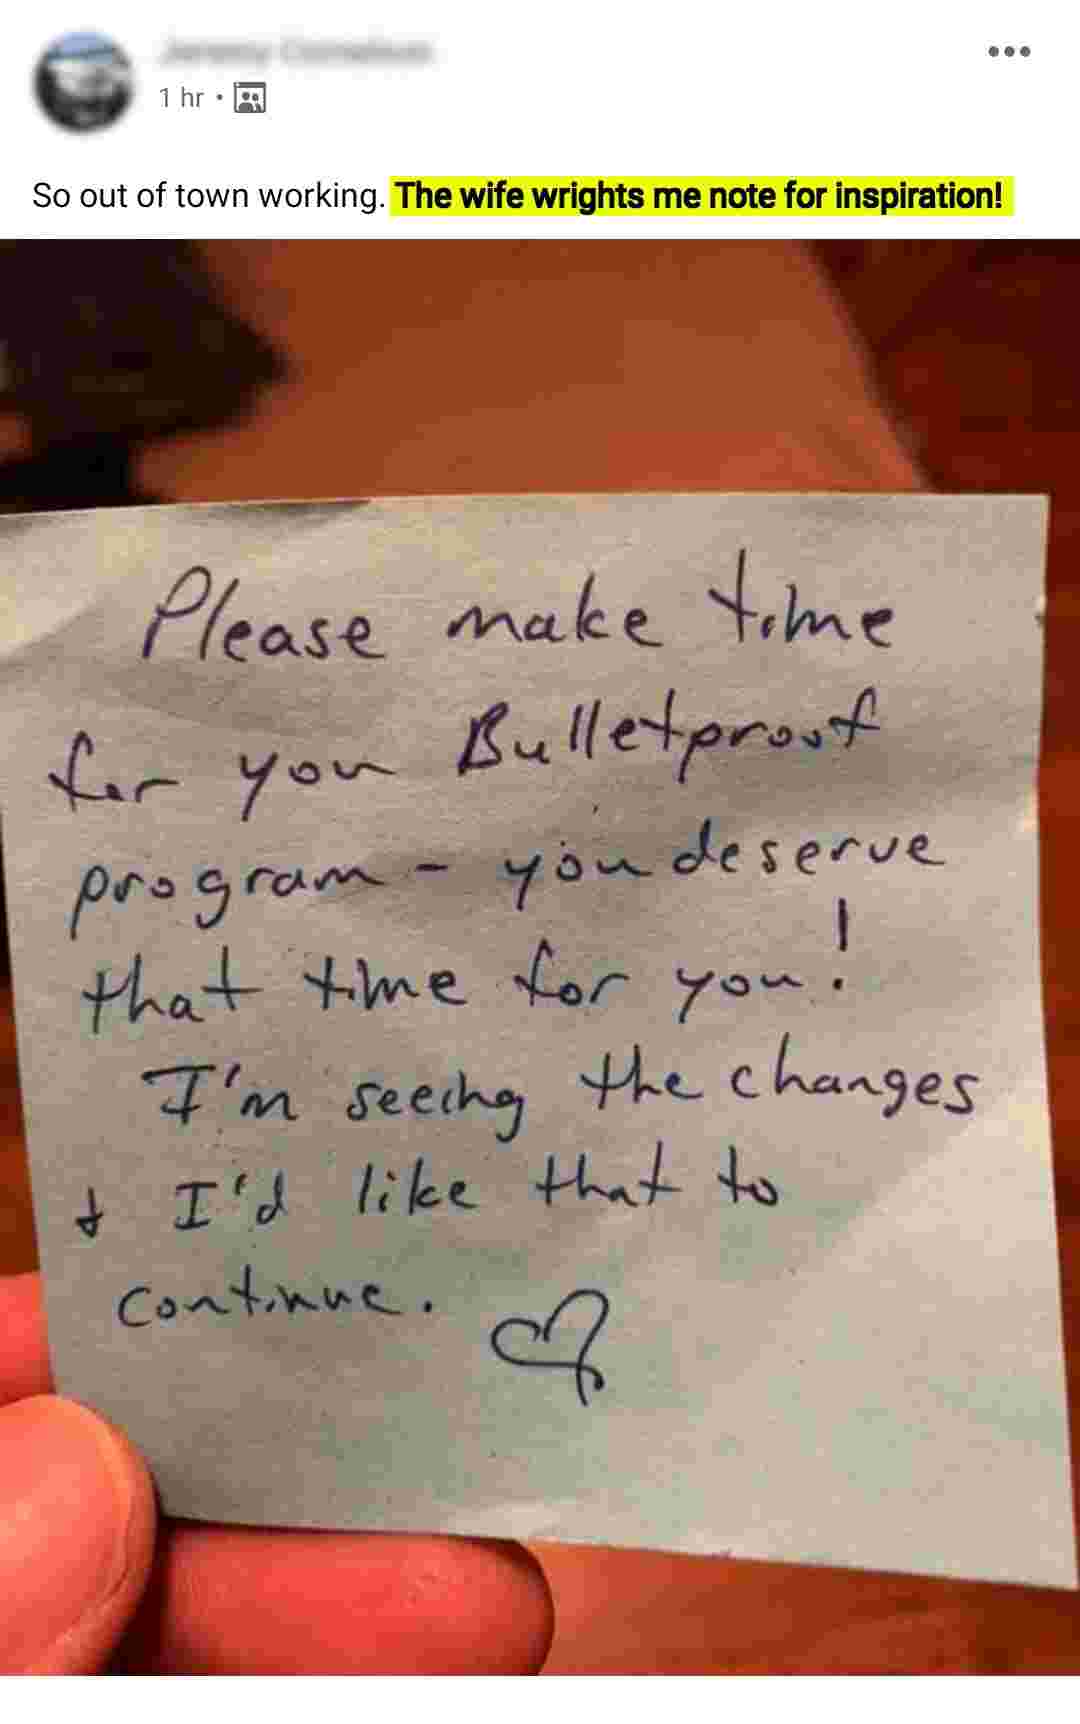 1 hr
So out of town working. The wife wrights me note for inspiration!
Please make time
for you Bulletproof
program - you deserve
that time for you!
I'm seeing the changes
& I'd like that to
continue.